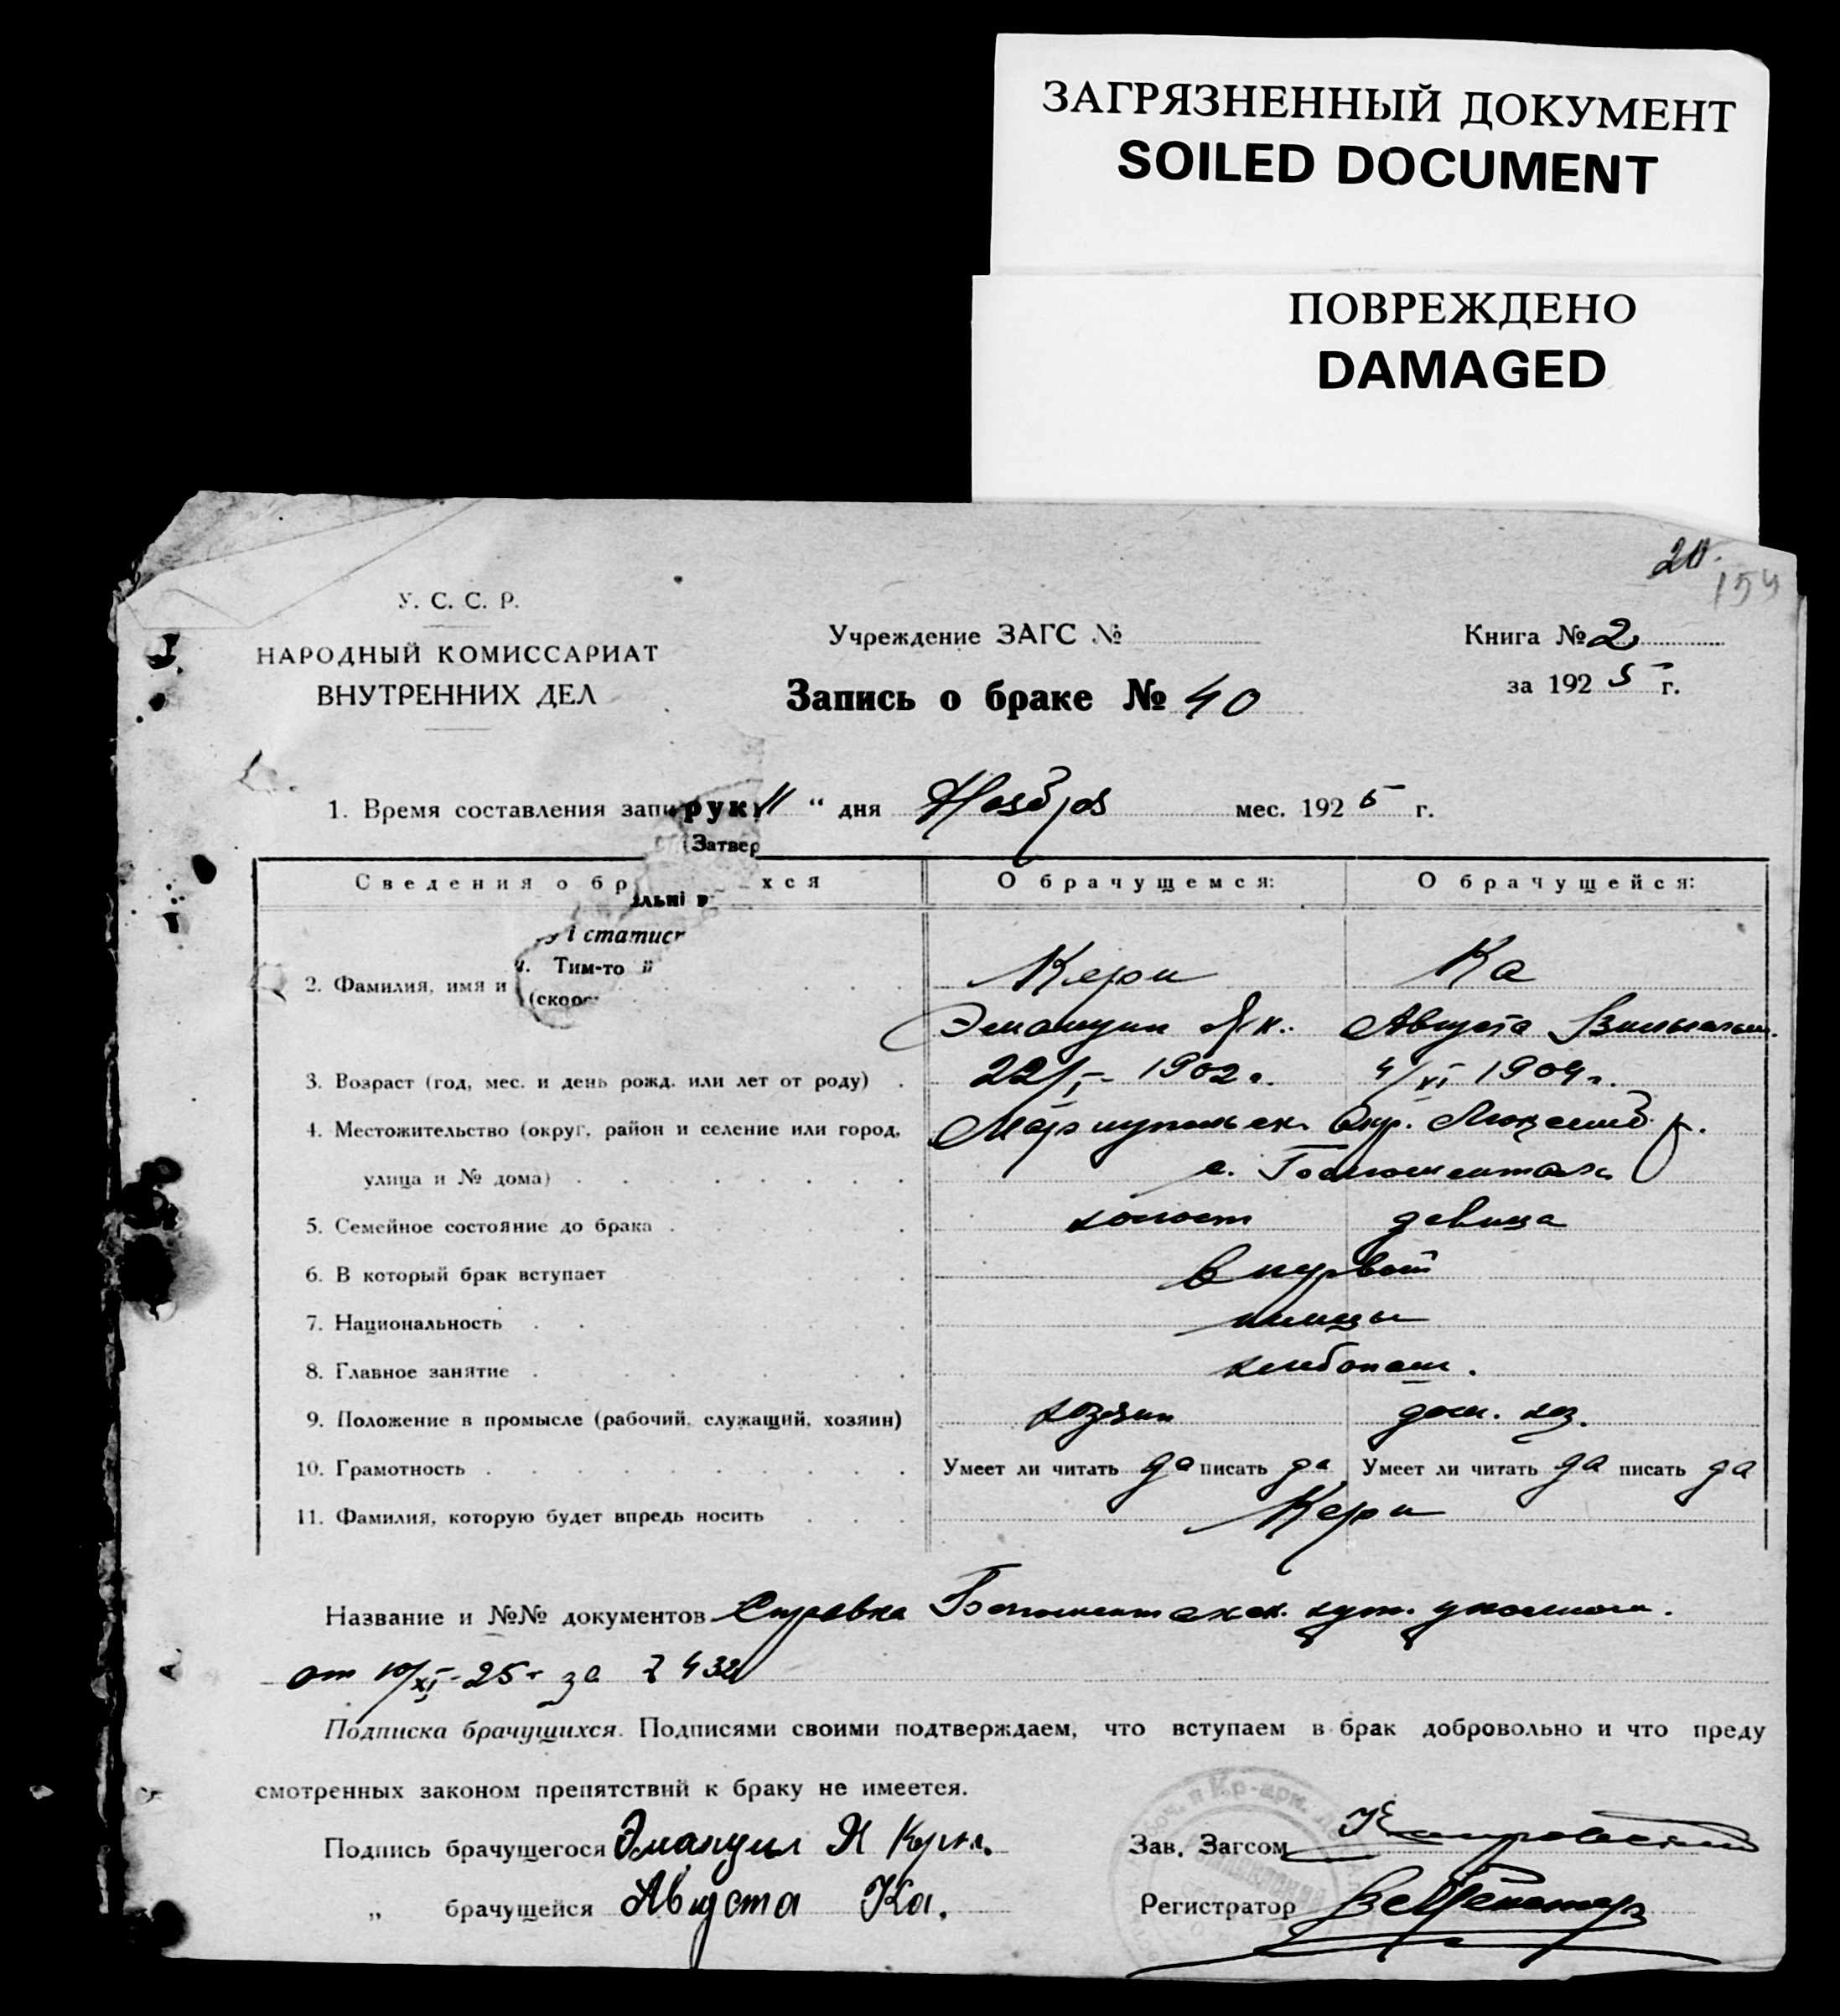 ЗАГРЯЗНЕННЫЙ ДОКУМЕНТ
SOILED DOCUMENT
ПОВРЕЖДЕНО
DAMAGED
154
У. С. С. Р.
НАРОДНЫЙ КОМИССАРИАТ
ВНУТРЕННИХ ДЕЛ
Учреждение ЗАГС №
Запись о браке № 40
Книга № 2
за 1925 г.
1. Время составления запи рук 11 " дня Ноября мес. 1925 г.
(Затвер
Сведения о бр хся О брачущемся: О брачущейся:
льні в
і статист
Тим-то
2. Фамилия, имя и (скоро Керн Ка
Эмануил Як. Августа Вильгельм.
3. Возраст (год, мес. и день рожд. или лет от роду) 22/I - 1902 г. 4/VI 1904 г.
4. Местожительство (округ, район и селение или город, Мариупольск. Окр. Люксемб. р.
улица и № дома) с.
5. Семейное состояние до брака холост девица
6. В который брак вступает в первый
7. Национальность немцы
8. Главное занятие хлебопаш.
9. Положение в промысле (рабочий, служащий, хозяин) хозяин дом. хоз.
10. Грамотность Умеет ли читать да писать да Умеет ли читать да писать да
11. Фамилия, которую будет впредь носить Керн
Название и №№ документов Справка
от 10/XI-25 г за 2432
Подписка брачущихся. Подписями своими подтверждаем, что вступаем в брак добровольно и что преду
смотренных законом препятствий к браку не имеется.
Подпись брачущегося Эмануил Я Керн.
Зав. Загсом
„ брачущейся Августа Ка.
Регистратор